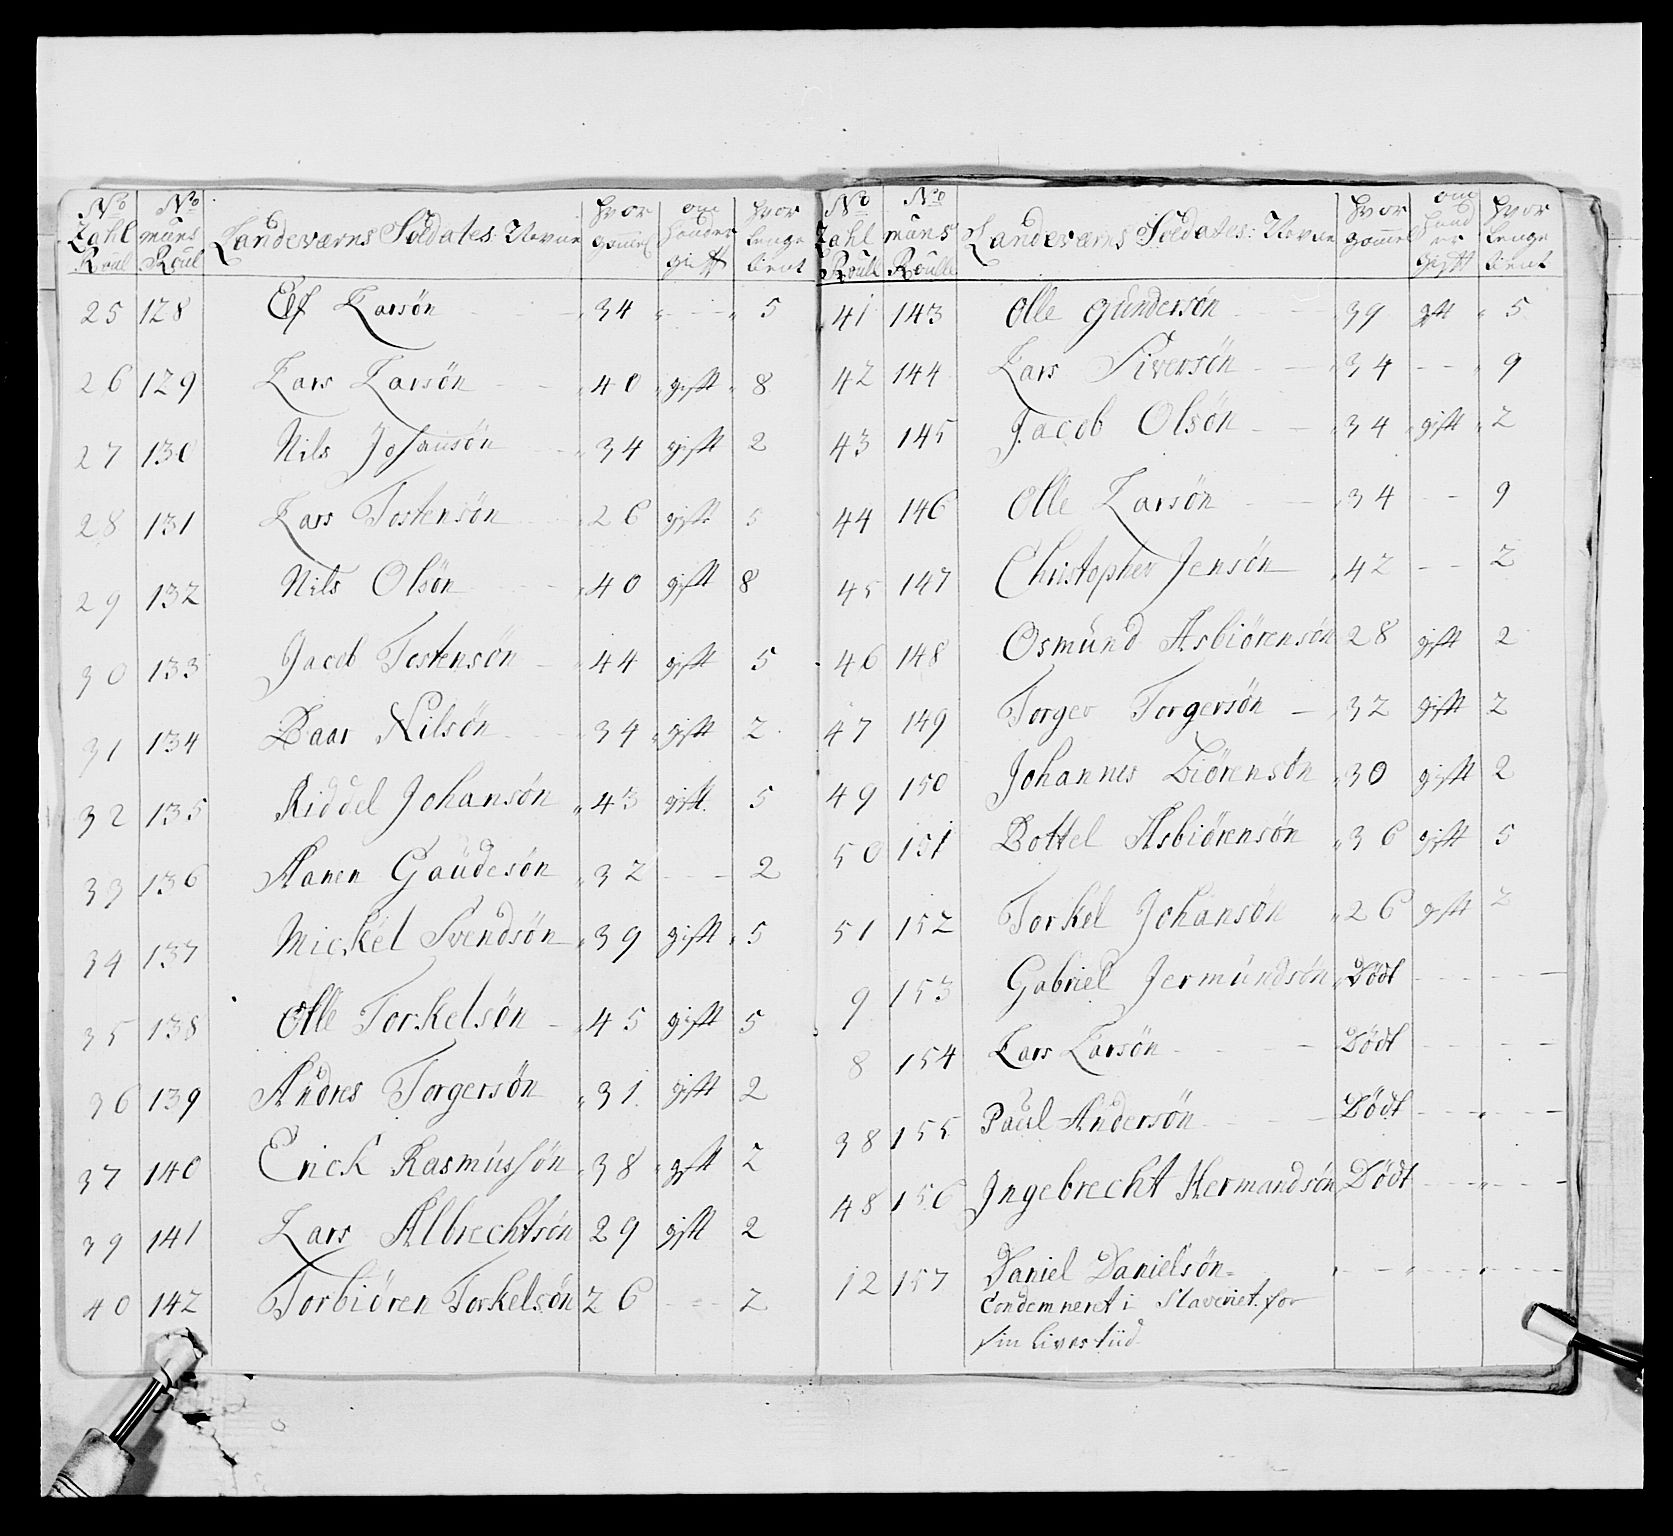 No Zahl Roul | No müns Roul | Landeværns Soldates Nevne | hvor gammel | om hand er gift | hvor lenge tient
25 128 Elf Larsön 34 - - - 5
26 129 Lars Larsön 40 gift 8
27 130 Nils Johansön 34 gift 2
28 131 Lars Tostensön 26 gift 5
29 132 Nils Olsön 40 gift 8
30 133 Jacob Tostensön 44 gift 5
31 134 Baar Nilsön 34 gift 2
32 135 Riddel Johansön 43 gift 5
33 136 Aanen Gaüdesön 32 - - - 2
34 137 Mickel Svendsön 39 gift 5
35 138 Olle Torkelsön 45 gift 5
36 139 Andres Torgersön 31 gift 2
37 140 Erick Rasmüssön 38 gift 2
39 141 Lars Albrechtsön 29 gift 2
40 142 Torbiören Torkelsön 26 - - - 2
No Zahl Roull | No müns Roulle | Landeværns Soldates Nevne | hvor gammel | om hand er gift | hvor lenge tient
41 143 Olle Gündersön 39 gift 5
42 144 Lars Siversön 34 - - 9
43 145 Jacob Olsön 34 gift 2
44 146 Olle Larsön 34 - - 9
45 147 Christopher Jensön 42 - - 2
46 148 Osmünd Asbiörensön 28 gift 2
47 149 Torger Torgersön 32 gift 2
49 150 Johannes Biörensön 30 gift 2
50 151 Bottel Asbiörensön 36 gift 5
51 152 Torkel Johansön 26 gift 2
9 153 Gabriel Jermündsön Dödt
8 154 Lars Larsön Dödt
38 155 Paül Andersön Dödt
48 156 Ingebrecht Hermandsön Dödt
12 157 Daniel Danielsön
Condemneret i Slaveriet for
sin livestiid